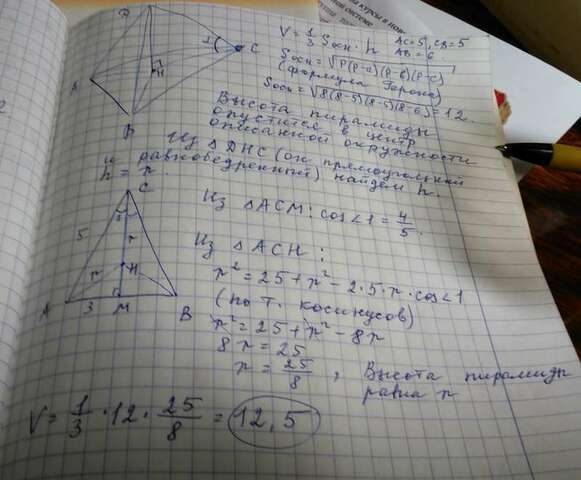 V = 1/3 Sосн · h   AC=5, CB=5
AB=6
Sосн = √p(p-a)(p-b)(p-c)
(формула Герона)
Sосн = √8(8-5)(8-5)(8-6) = 12.
Высота пирамиды
опустится в центр
описанной окружности
Из △DHC (он прямоугольный
и равнобедренный) найдём h.
h = r.
D
A
H
1
C
B
Из △ACM: cos∠1 = 4/5.
Из △ACH:
r² = 25 + r² - 2·5·r·cos∠1
(по т. косинусов)
r² = 25 + r² - 8r
8r = 25
r = 25/8 , Высота пирамиды
равна r
C
1
5
r
r
H
A
3
M
B
V = 1/3 · 12 · 25/8 = 12,5